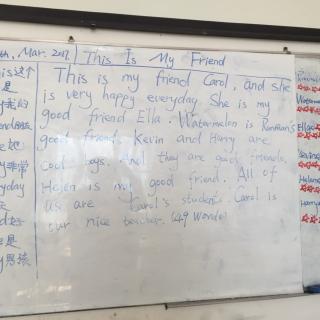 Mar, 2017.
This Is My Friend
This is my friend Carol, and she
is very happy everyday. She is my
good friend Ella. Watermelon is
good friend. Kevin and Harry are
cool boys. And they are good friends.
is my good friend. All of
us are Carol's students. Carol is
our nice teacher. (49 Words)
这个
是
我的
她
非常
yday
好
是
男孩
Ella